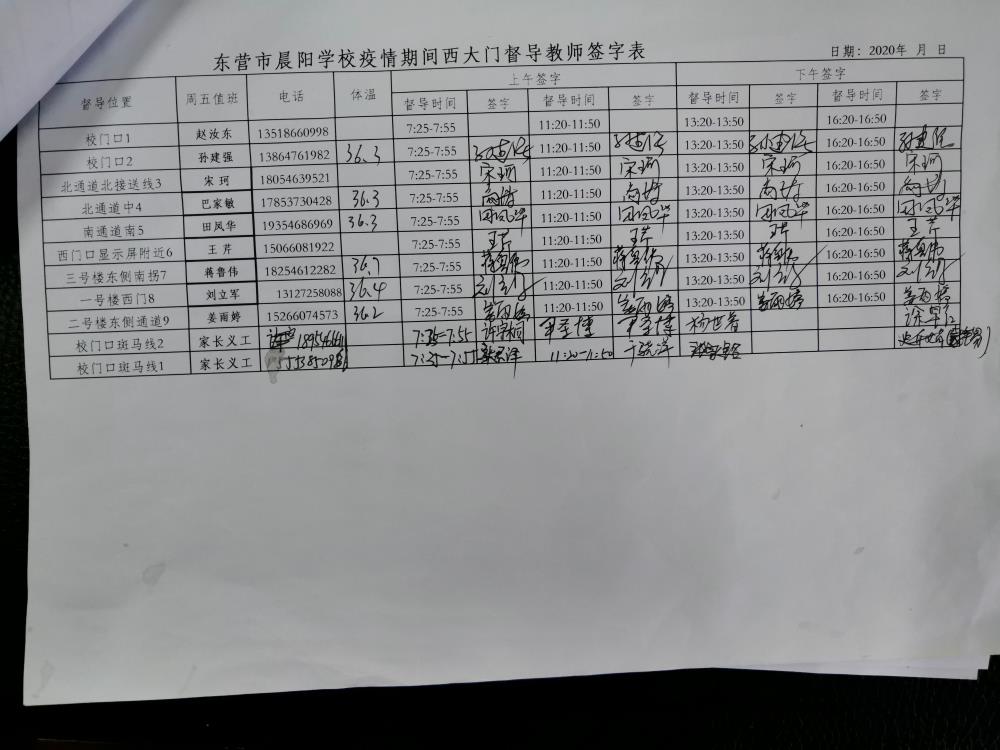 东营市晨阳学校疫情期间西大门督导教师签字表
日期：2020年 月 日
督导位置 周五值班 电话 体温 上午签字 下午签字
督导时间 签字 督导时间 签字 督导时间 签字 督导时间 签字
校门口1 赵汝东 13518660998 7:25-7:55 11:20-11:50 13:20-13:50 16:20-16:50
校门口2 孙建强 13864761982 36.3 7:25-7:55 孙建强 11:20-11:50 孙建强 13:20-13:50 孙建强 16:20-16:50 孙建强
北通道北接送线3 宋珂 18054639521 7:25-7:55 宋珂 11:20-11:50 宋珂 13:20-13:50 宋珂 16:20-16:50 宋珂
北通道中4 巴家敏 17853730428 36.3 7:25-7:55 11:20-11:50 13:20-13:50 16:20-16:50
南通道南5 田凤华 19354686969 36.3 7:25-7:55 田凤华 11:20-11:50 田凤华 13:20-13:50 田凤华 16:20-16:50 田凤华
西门口显示屏附近6 王芹 15066081922 7:25-7:55 王芹 11:20-11:50 王芹 13:20-13:50 王芹 16:20-16:50 王芹
三号楼东侧南拐7 蒋鲁伟 18254612282 36.7 7:25-7:55 蒋鲁伟 11:20-11:50 蒋鲁伟 13:20-13:50 蒋鲁伟 16:20-16:50 蒋鲁伟
一号楼西门8 刘立军 13127258088 36.4 7:25-7:55 刘立军 11:20-11:50 刘立军 13:20-13:50 刘立军 16:20-16:50 刘立军
二号楼东侧通道9 姜雨婷 15266074573 36.2 7:25-7:55 姜雨婷 11:20-11:50 姜雨婷 13:20-13:50 姜雨婷 16:20-16:50 姜雨婷
校门口斑马线2 家长义工 7:25-7:55
校门口斑马线1 家长义工 7:25-7:55 11:20-11:50